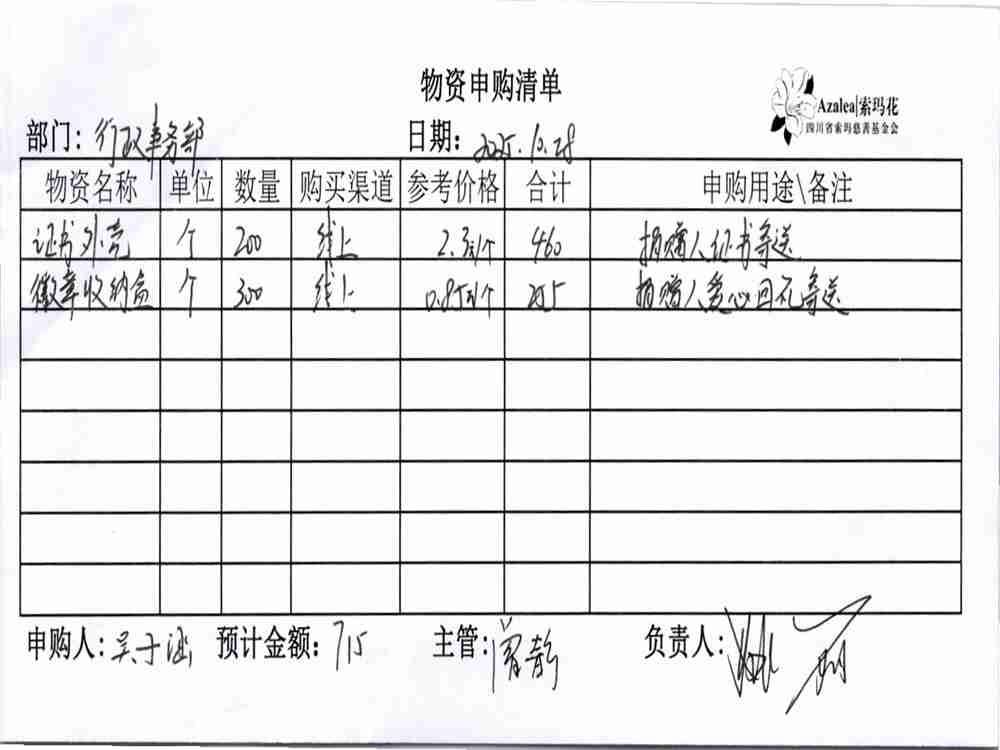 物资申购清单
Azalea|索玛花
四川省索玛慈善基金会
部门：行政事务部 日期：2025.10.28
物资名称 单位 数量 购买渠道 参考价格 合计 申购用途\备注
证书外壳 个 200 线上 2.3元/个 460 捐赠人证书寄送
徽章收纳盒 个 300 线上 0.85元/个 255 捐赠人爱心回礼寄送
申购人：吴于涵 预计金额：715 主管：曾静 负责人：